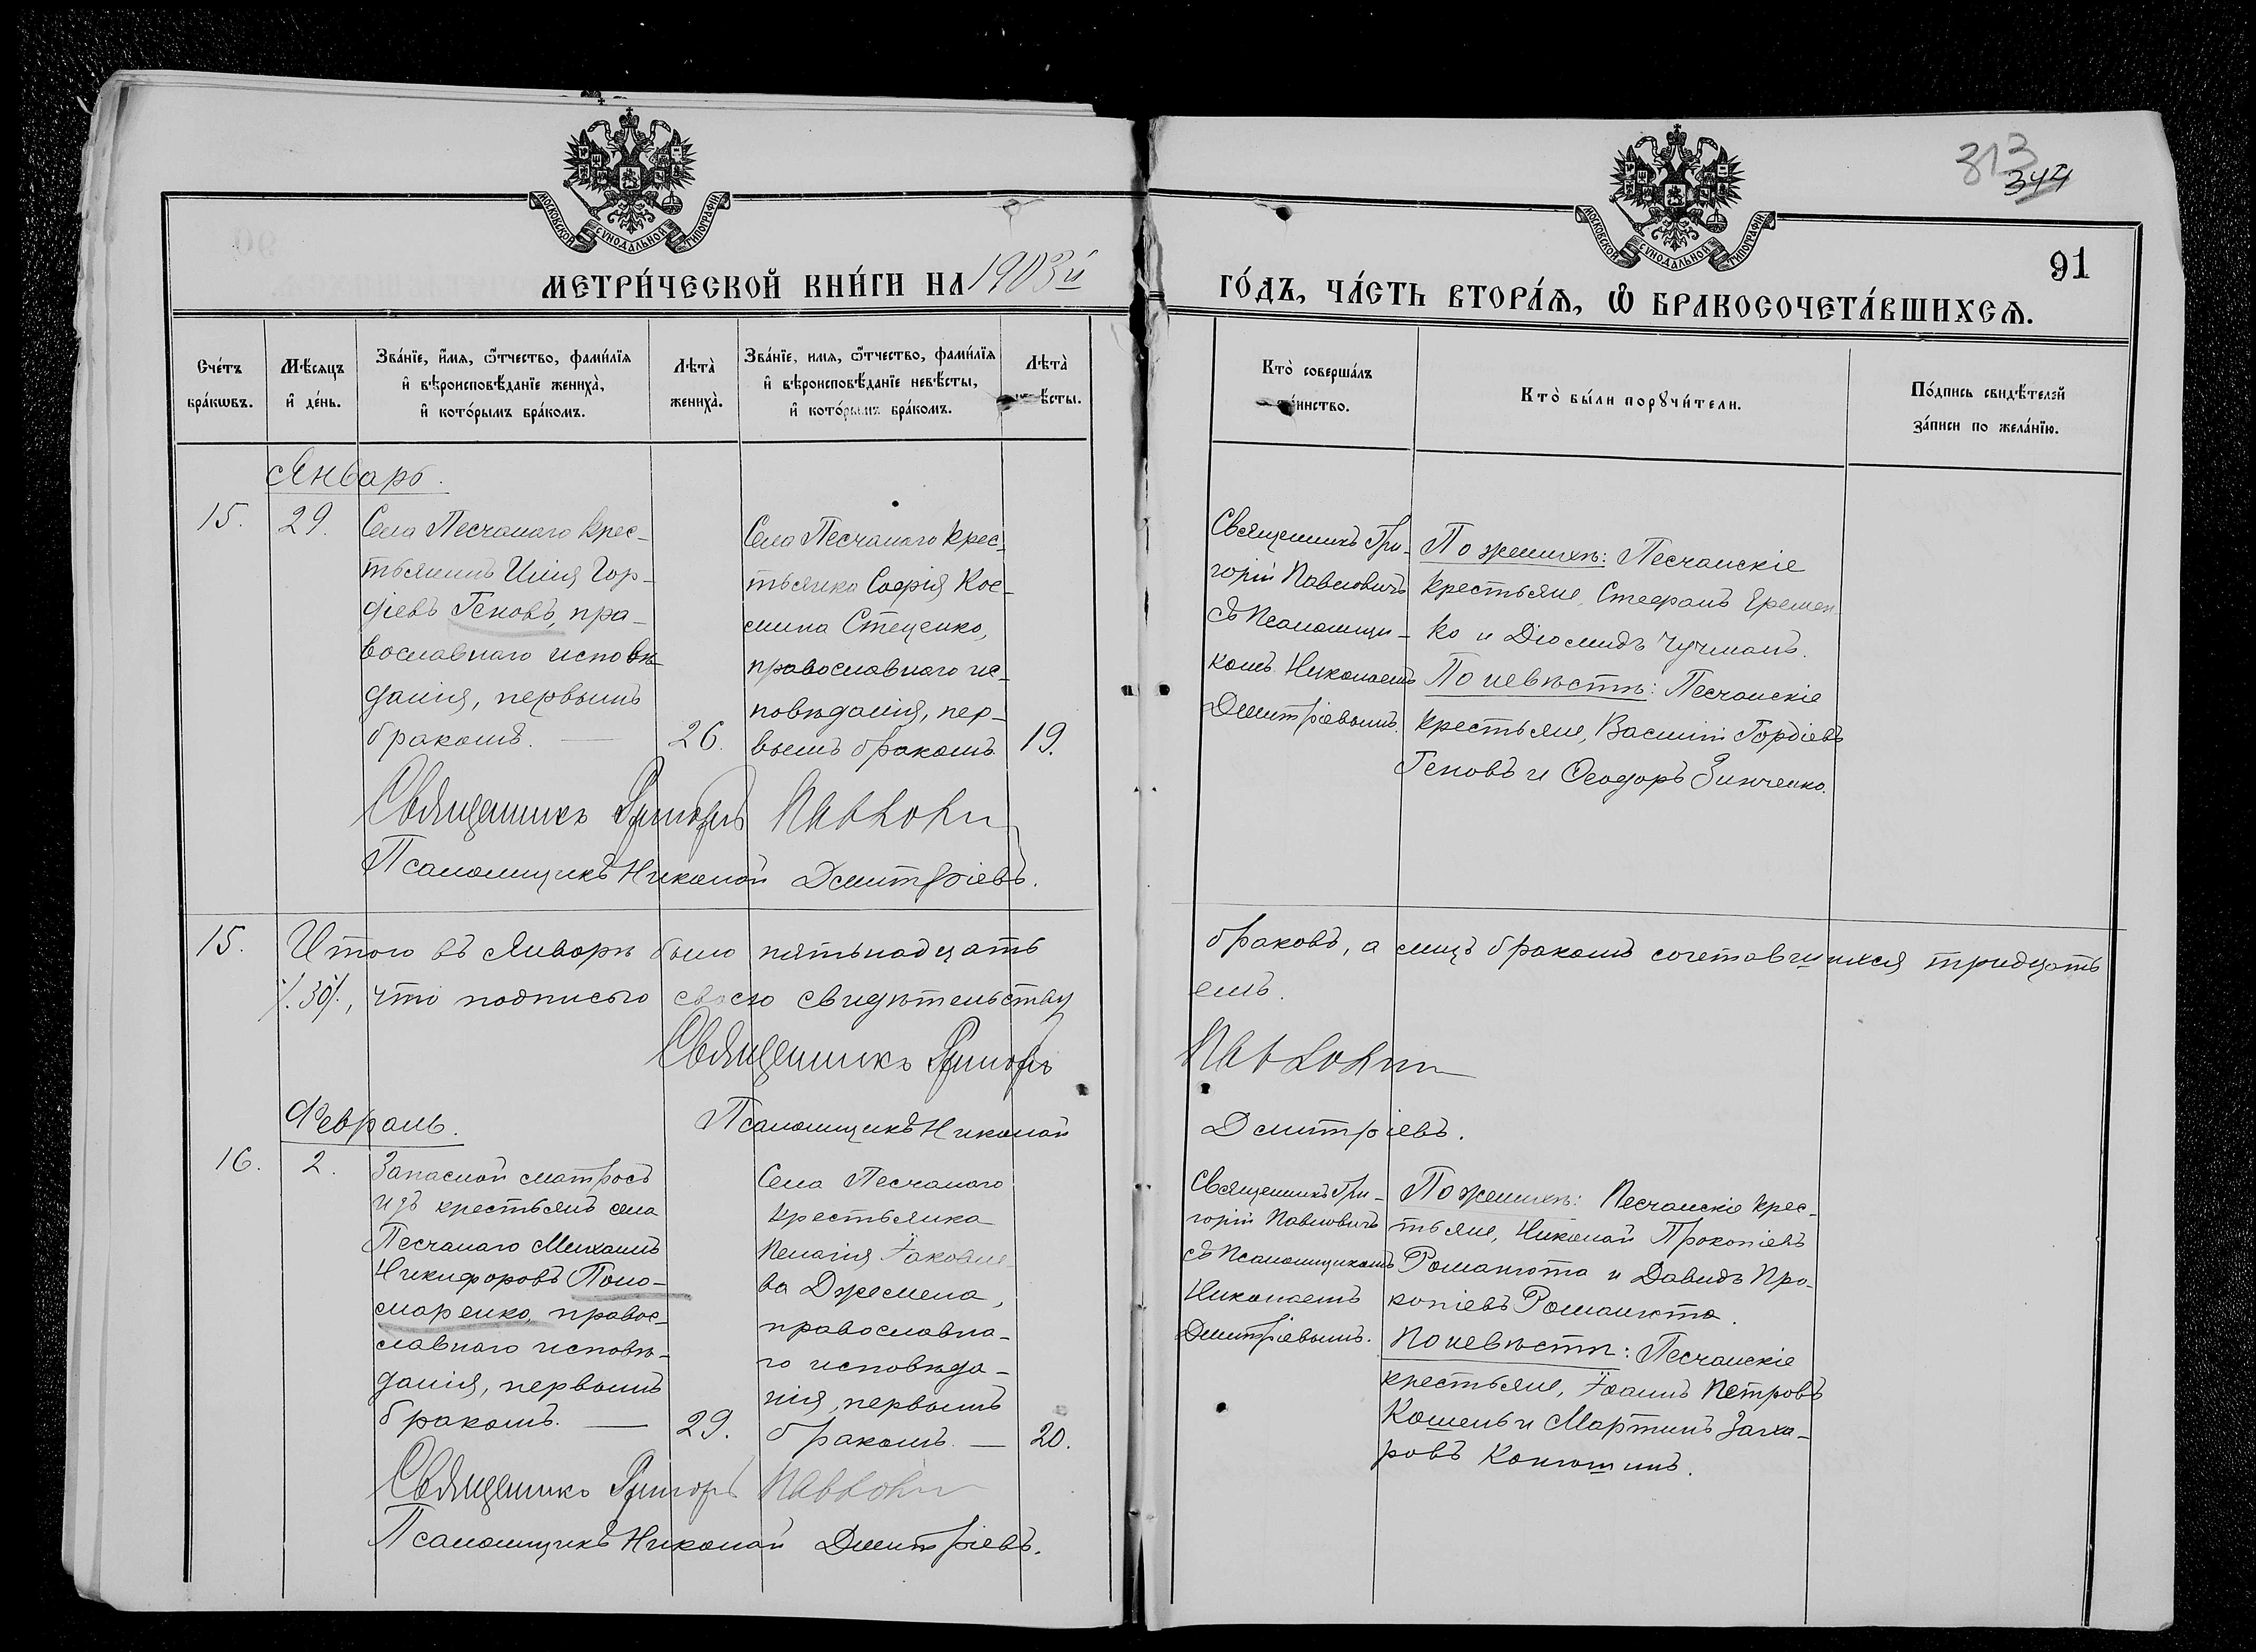 313
344
91
МОСКОВСКОЙ СѴНОДАЛЬНОЙ ТИПОГРАФІИ
МОСКОВСКОЙ СѴНОДАЛЬНОЙ ТИПОГРАФІИ
МЕТРИ́ЧЕСКОЙ КНИ́ГИ НА 1903й
ГО́ДЪ, ЧА́СТЬ ВТОРА́Ѧ, Ѡ БРАКОСОЧЕТА́ВШИХСѦ.
Сче́тъ
бра́кѡвъ.
Мѣ́сяцъ
и҆ де́нь.
Зва́нїе, и҆́мя, ѻ҆́тчество, фами́лїя
и҆ вѣроисповѣ́данїе жениха̀,
и҆ кото́рымъ бра́комъ.
Лѣта̀
жениха̀.
Зва́нїе, имя, ѻ҆́тчество, фами́лїя
и҆ вѣроисповѣ́данїе невѣ́сты,
и҆ кото́рымъ бра́комъ.
Лѣта̀
невѣ́сты.
Кто̀ соверша́лъ
та́инство.
Кто̀ бы́ли порꙋчи́тели.
По́дпись свидѣ́телей
за́писи по жела́нїю.
Январь.
15.
29.
Села Песчанаго крес-
тьянинъ Илія Гор-
діевъ Геновъ, пра-
вославнаго исповѣ-
данія, первымъ
бракомъ. —
26.
Села Песчанаго крес-
тьянка Софія Кос-
мина Стеценко,
православнаго ис-
повѣданія, пер-
вымъ бракомъ
19.
Священникъ Гри-
горій Павловичъ
съ Псаломщи-
комъ Николаемъ
Дмитріевымъ.
По женихѣ: Песчанскіе
крестьяне, Стефанъ Еремен-
ко и Діомидъ Чучманъ.
По невѣстѣ: Песчанскіе
крестьяне, Василій Гордіевъ
Геновъ и Ѳеодоръ Зинченко.
Священникъ Григорій Павлович
Псаломщикъ Николай Дмитріевъ.
15. Итого въ Январѣ было пятьнадцать браковъ, а лицъ бракомъ сочетавшихся тридцать
/.30/., что подписью своею свидѣтельству емъ.
Священникъ Григорій Павлович
Псаломщикъ Николай Дмитріевъ.
Февраль.
16.
2.
Запасной матросъ
изъ крестьянъ села
Песчанаго Михаилъ
Никифоровъ Поно-
маренко, правос-
лавнаго исповѣ-
данія, первымъ
бракомъ. —
29.
Села Песчанаго
крестьянка
Пелагія Іаковле-
ва Джемела,
православна-
го исповѣда-
нія, первымъ
бракомъ. —
20.
Священникъ Гри-
горій Павловичъ
съ Псаломщикомъ
Николаемъ
Дмитріевымъ.
По женихѣ: Песчанскіе крес-
тьяне, Николай Прокопіевъ
Романюта и Давидъ Про-
копіевъ Романюта.
По невѣстѣ: Песчанскіе
крестьяне, Іоаннъ Петровъ
Кошель и Мартинъ Заха-
ровъ Конюшинъ.
Священникъ Григорій Павлович
Псаломщикъ Николай Дмитріевъ.